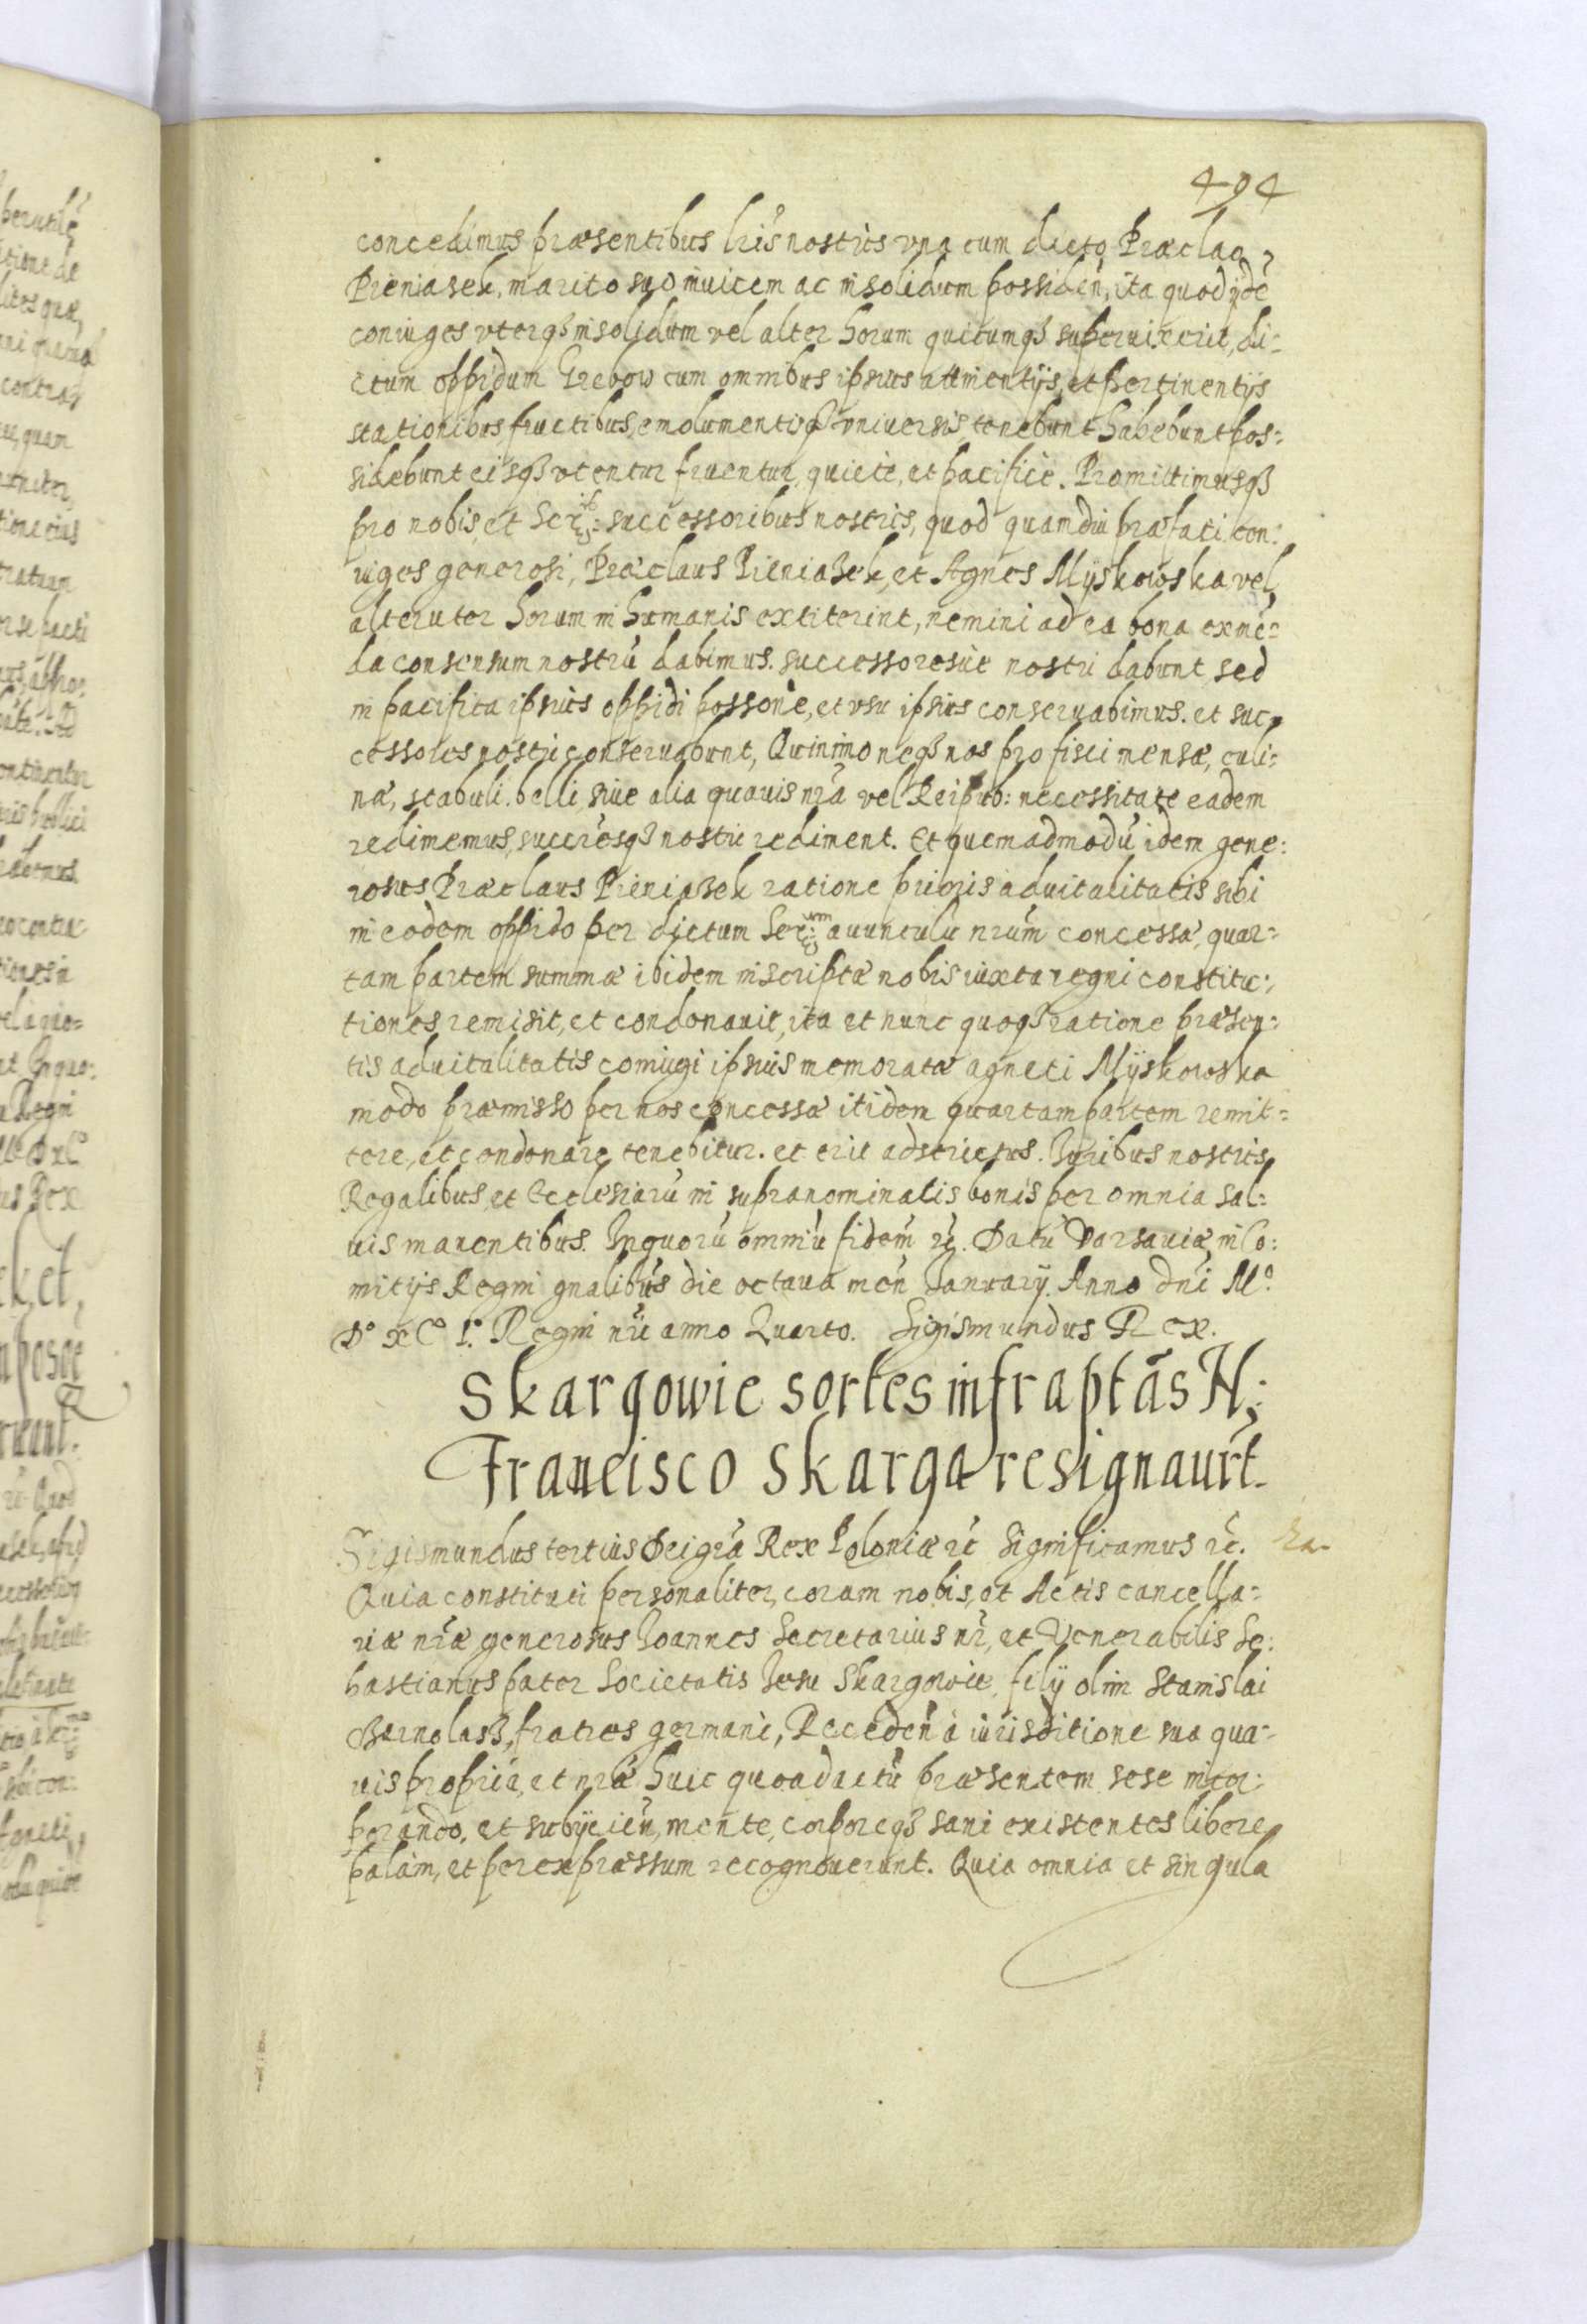 494
concedimus præsentibus lr̃is nostris vna cum dicto Præclao
Pieniasek, marito suo inuicem ac insolidum possideñ, ita quod ijdẽ
coniuges vterqȝ insolidum vel alter horum quicumqȝ superuixerit, di=
ctum oppidum Grebow cum omnibus ipsius attinentijs, et pertinentijs
stationibus, fructibus, emolumentisqȝ vniuersis, tenebunt habebunt pos=
sidebunt eisqȝ vtentur fruentur, quiete, et pacifice. Promittimusqȝ
pro nobis, et Ser: successoribus nostris, quod quamdiu præfati con:
iuges generosi, Præclaus Pieniaȝek, et Agnes Mÿskowska vel
alteruter horum in humanis extiterint, nemini ad ea bona eximẽ=
da consensum nostrũ dabimus. successoresue nostri dabunt, sed
in pacifica ipsius oppidi possone, et vsu ipsius conseruabimus. et suc=
cessores nostri conseruabunt, Quinimo neqȝ nos pro fisci mensæ, culi=
næ, stabuli. belli, siue alia quauis nr̃a vel Reipub: necessitate eadem
redimemus, succr̃esqȝ nostri rediment. Et quemadmodũ idem gene:
rosus Præclaus Pieniaȝek ratione prioris aduitalitatis sibi
in eodem oppido per dictum Ser:um auunculũ nr̃um concessæ, quar=
tam partem summæ ibidem inscriptæ nobis iuxta regni constitu:
tiones remisit, et condonauit, ita et nunc quoqȝ ratione præsen=
tis aduitalitatis coniugi ipsius memoratæ agneti Mÿskowska
modo præmisso per nos concessæ itidem quartam partem remit=
tere, et condonare tenebitur. et erit adstrictus. Iuribus nostris
Regalibus, et Ecclesiarũ in supranominatis bonis per omnia sal=
uis manentibus. In quorũ omniũ fidem ꝛc̃. Datũ Varsauiæ, in Co:
mitijs Regni gñalibus die octaua meñ Ianuarij. Anno dñi Mº
Dº xCº I.º Regni nr̃i anno Quarto. Sigismundus Rex.
Skargowie sortes infraptãs N:
Francisco Skarga resignaur̃t.
Sigismundus tertius Dei gr̃a Rex Poloniæ ꝛc̃ Significamus ꝛc̃.
Quia constituti personaliter, coram nobis, et Actis cancella=
riæ nr̃æ generosus Ioannes Secretarius nr̃, et Venerabilis Se:
bastianus pater Societatis Iesu Skargowie, filij olim Stanislai
fratres germani, Recedeñ à iurisditione sua qua=
uis propria, et nr̃æ huic quoad actũ præsentem sese incor:
porando, et subijcieñ, mente, corporeqȝ sani existentes libere
palam, et per expræssum recognouerunt. Quia omnia et singula